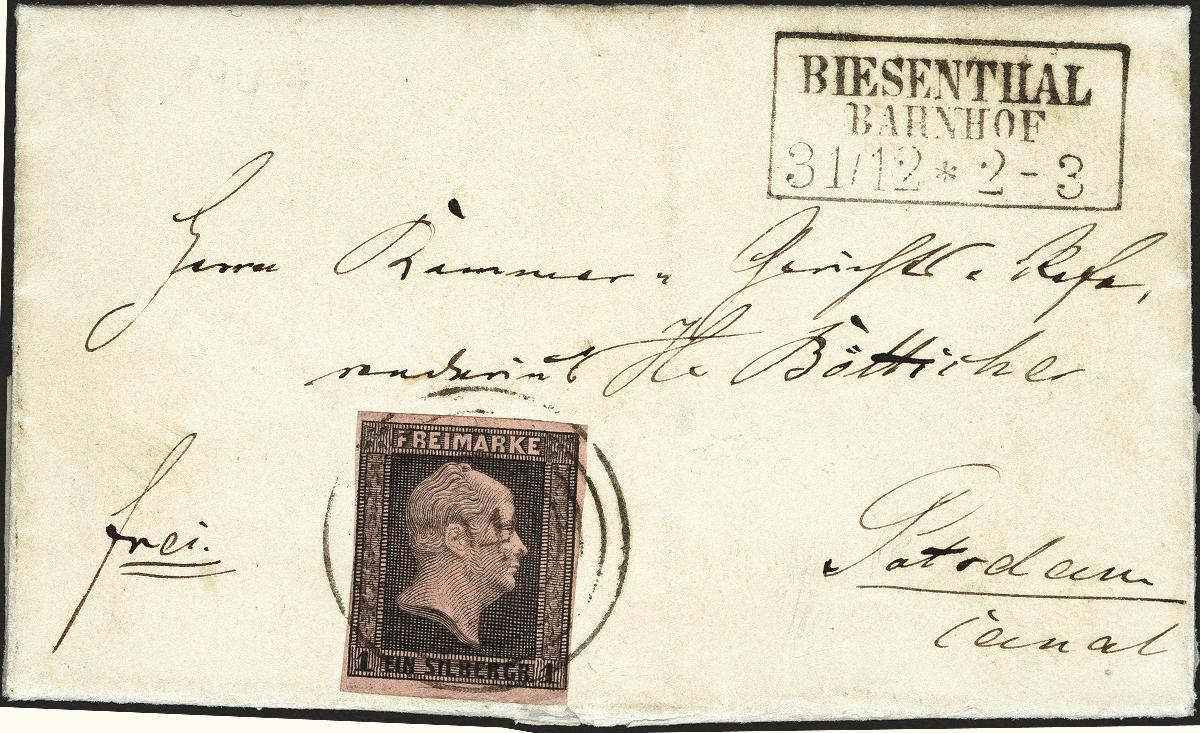 BIESENTHAL
BAHNHOF
31/12 * 2-3
Herrn Kammer- Gerichts- Refe,
rendarius H Bötticher
FREIMARKE
frei.
Potsdam
1 EIN SILBERGR. 1
Canal